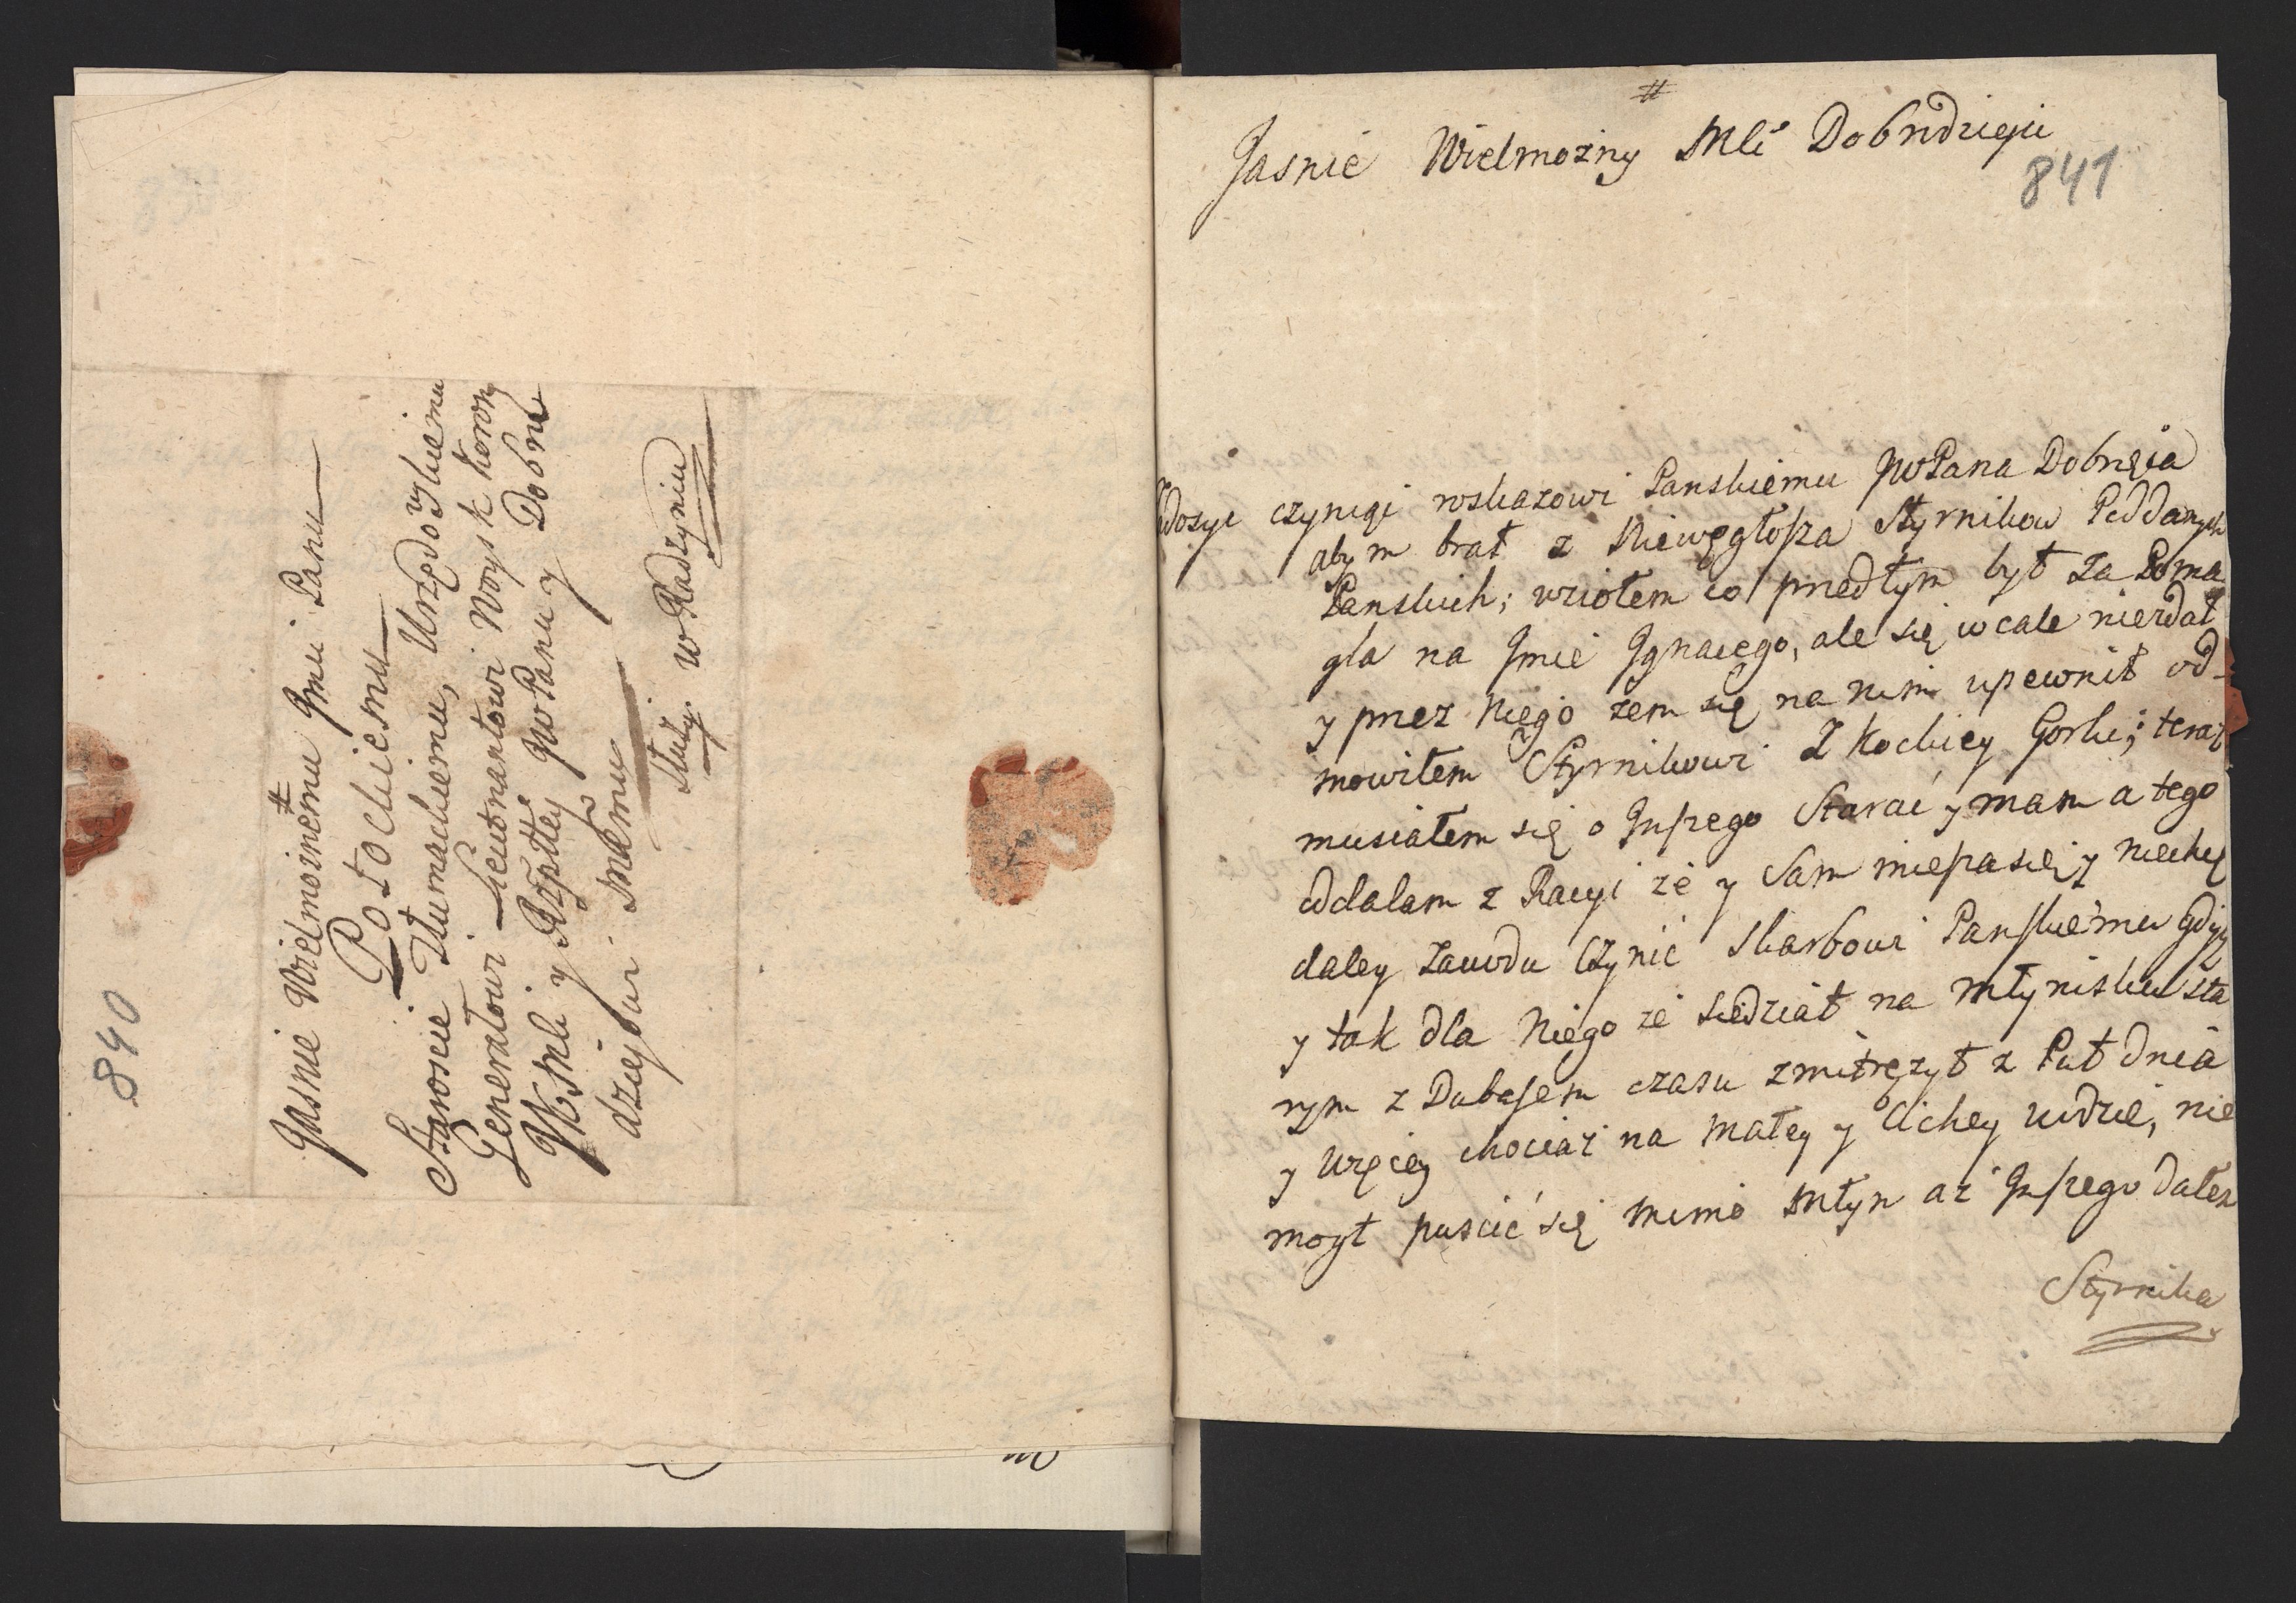 840
Jasnie Wielmożnemu Jmci Panu
Potockiemu
Staroscie Tłumackiemu, Urzędowskiemu
Generałowi Lieutnantowi Woysk Koronỹ
W Mći y Rzptteỹ JWPanu y Dobro
dzieiowi Memu
służy w Radzyniu
#
Jasnie Wielmozny Mći Dobrodzieiu
841
Zadosyc czyniąc roskazowi Panskiemu JWPana Dobrdzieia
abym brał z Niewęgłosza Styrnikow Poddanych
Panskich; wziołem co przedtym był za Poma
gla na Jmie Jgnacego, ale się wcale niezdał
y przez Niego żem się na nim upewnił od-
mowiłem Styrnikowi Z Kockiey Gorki; teraz
musiałem się o Jnszego Starać y mam a tego
oddalam z Racyi że y Sam nieprasiej y niechcę
daley zawodu czynic Skarbowi Panskiemu Gdyż
y tak dla Niego że siedział na młynisku sta
rym z Dubasem czasu zmitrężył z Puł dnia
y więcey chociaż na małey y Cichey wodzie, nie
mogł puscić się mimo Młyn aż Jnszego dałem
Styrnika